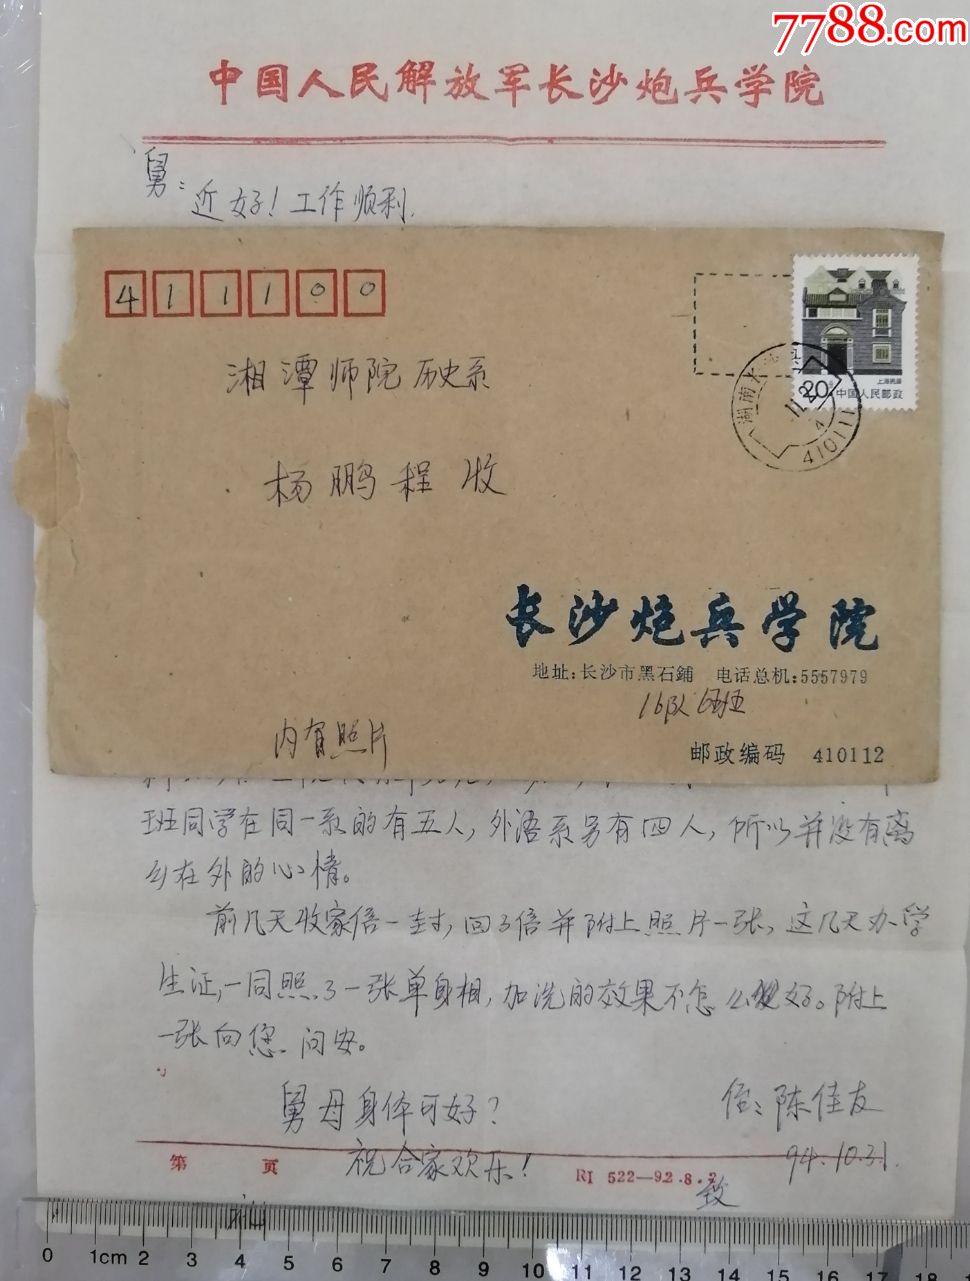 7788.com
中国人民解放军长沙炮兵学院
舅：
近好！工作顺利.
411100
湘潭师院历史系
杨鹏程 收
上海民居
20分
中国人民邮政
湖南
11.2
4
410111
长沙炮兵学院
地址:长沙市黑石鋪 电话总机:5557979
16队 伍班
内有照片
邮政编码 410112
班同学在同一系的有五人,外语系另有四人,所以并没有离
乡在外的心情。
前几天收家信一封,回了信并附上照片一张,这几天办学
生证,一同照了一张单身相,加洗的效果不怎么好。附上
一张向您 问安。
舅母身体可好?
侄:陈佳友
祝合家欢乐!
94.10.31.
第 页
RI 522—92.8.2
致
0 1cm 2 3 4 5 6 7 8 9 10 11 12 13 14 15 16 17 18